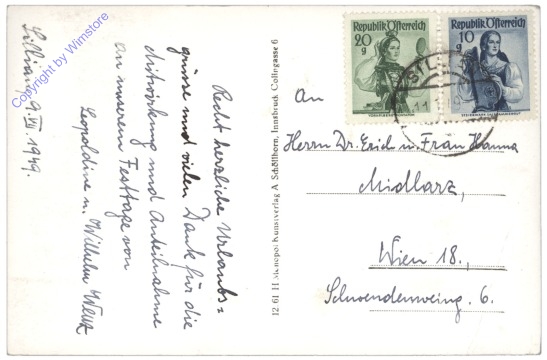 Sillian, 9.VII.1949.
Recht herzliche Urlaubs=
grüsse und vielen Dank für die
Mitwirkung und Anteilnahme
an unserem Festtage von
Leopoldine u. Wilhelm
Copyright by Wimstore
12 61 H Monopol Kunstverlag A Schöllhorn, Innsbruck Colingasse 6
Republik Österreich
20
g
Republik Österreich
10
g
SILLIAN
An
Herrn Dr. Erich u. Frau Hanna
Midlarz,
Wien 18.,
6.